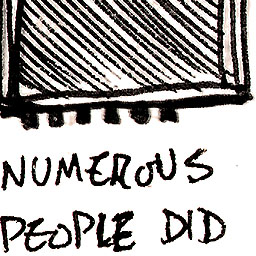 NUMEROUS
PEOPLE DID